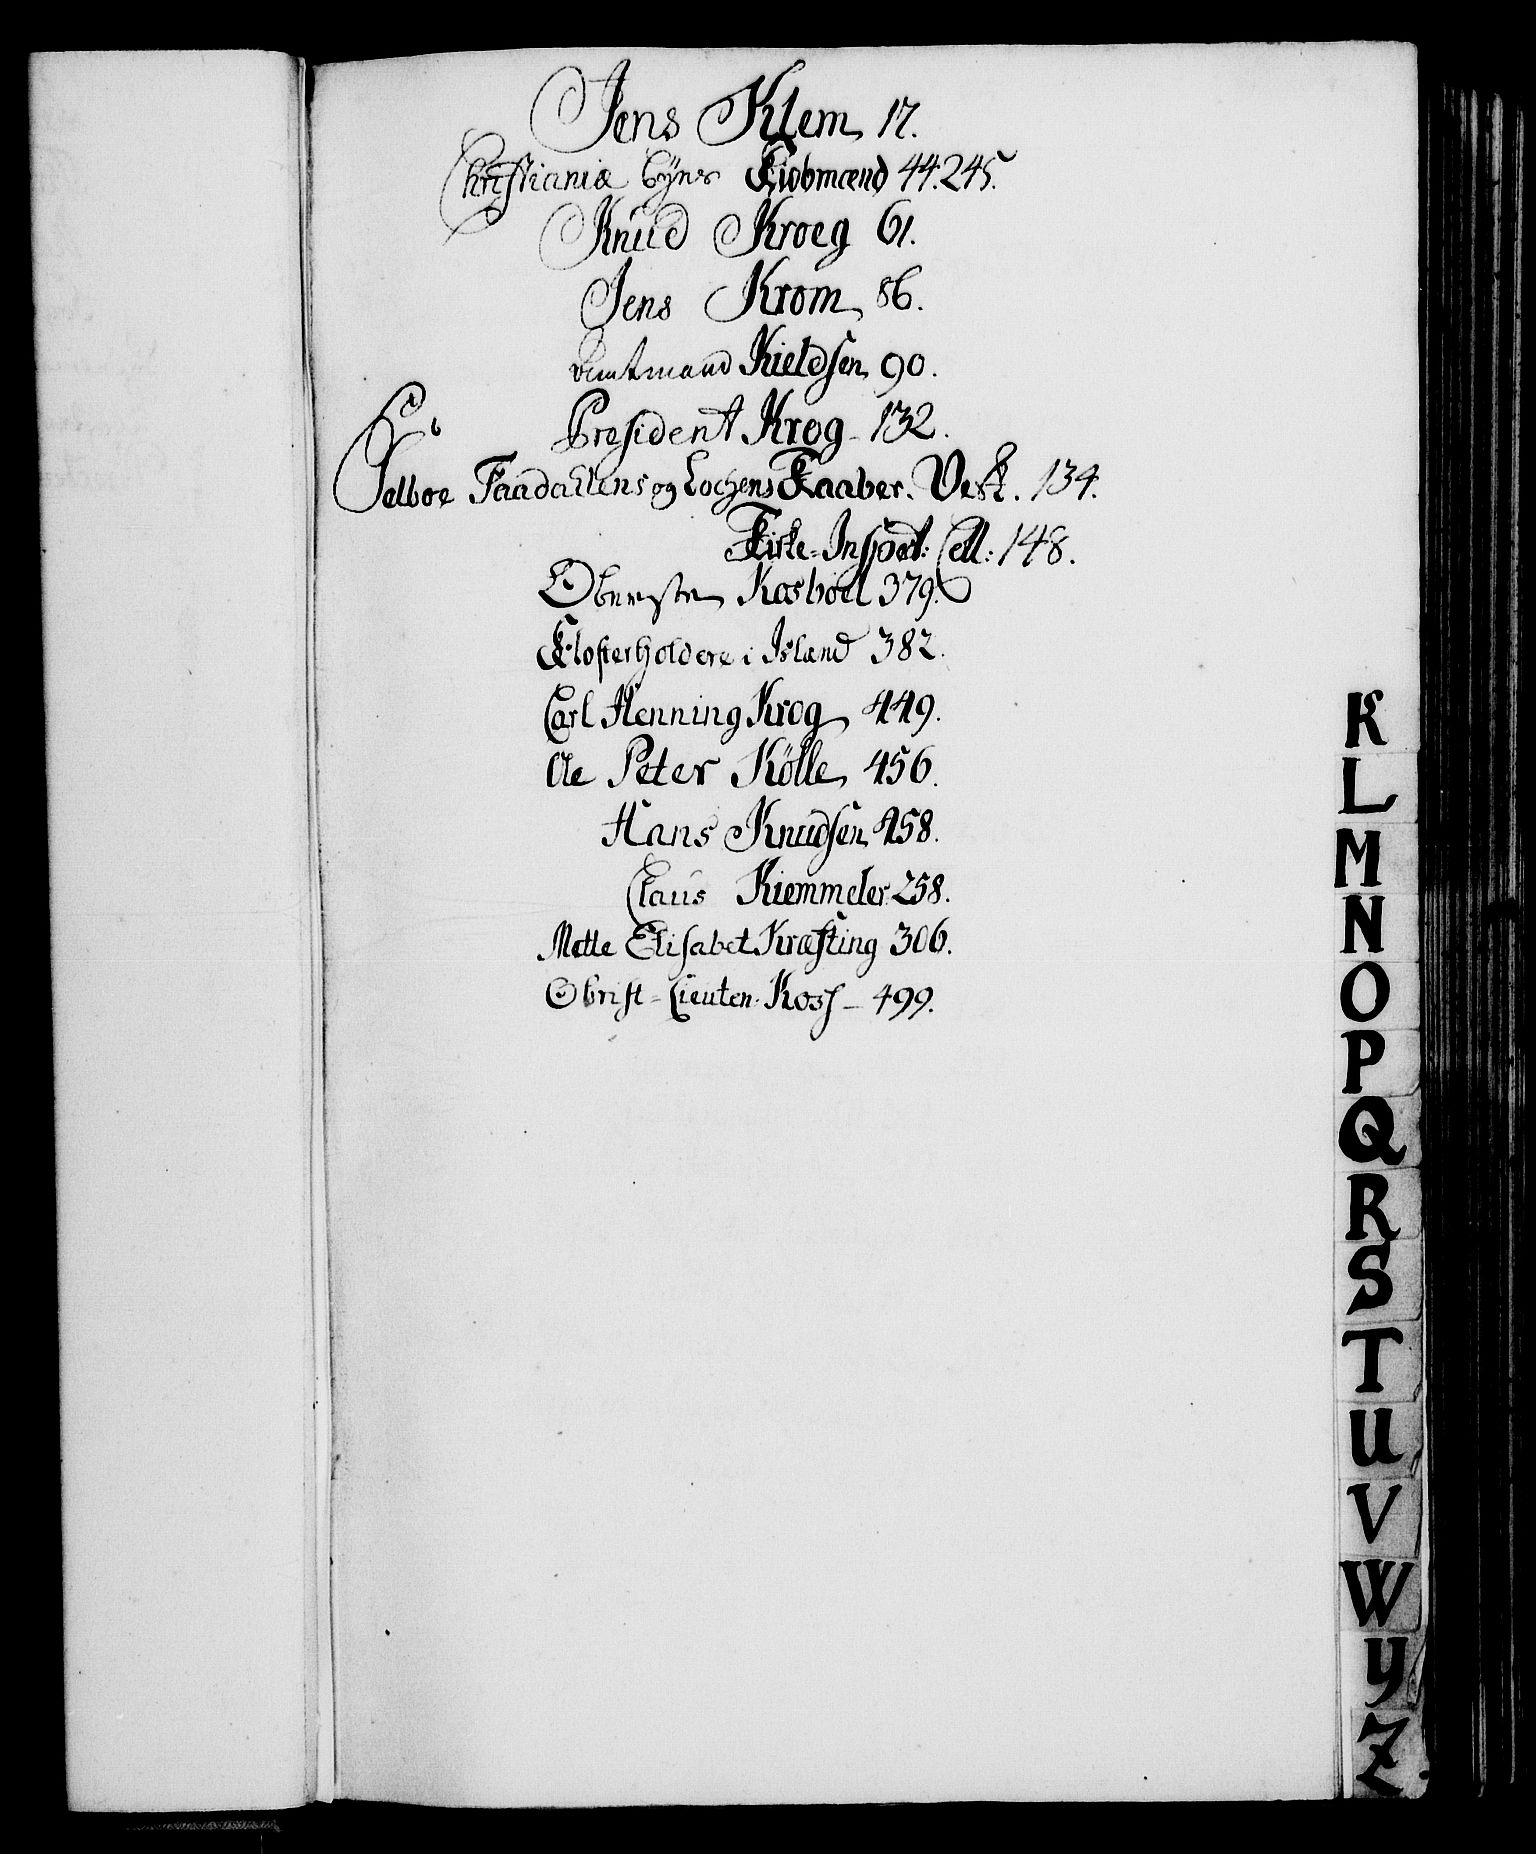 Jens Klem 17.
Christianiæ Byes Kiøbmænd 44. 245.
Knud Kroeg 61.
Jens Krom 86.
Amtmand Kieldsen 90.
President Krog - 132.
Selboe Faadallens og Lochens Kaaber. Verk. 134.
Kirke-Inspect: Coll: 148.
Obersten Kaasböell 379.
Klosterholdere i Island 382.
Carl Henning Krog 449.
Ole Peter Kölle 456.
Hans Knudsen 458.
Claus Kiemmeler 258.
Mette Elisabet Kræfting 306.
Obrist-Lieuten. Koss - 499.
K
L
M
N
O
P
Q
R
S
T
U
V
W
Y
Z